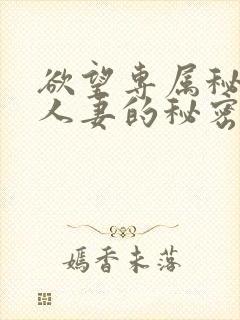 欲望专属秘
人妻的秘密
嫣香未落